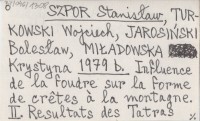 SZPOR Stanisław, TUR-
KOWSKI Wojciech, JAROSIŃSKI
Bolesław, MIŁADOWSKA
Krystyna 1979 b. Influence
de la foudre sur la forme
de crêtes à la montagne.
II. Resultats des Tatras